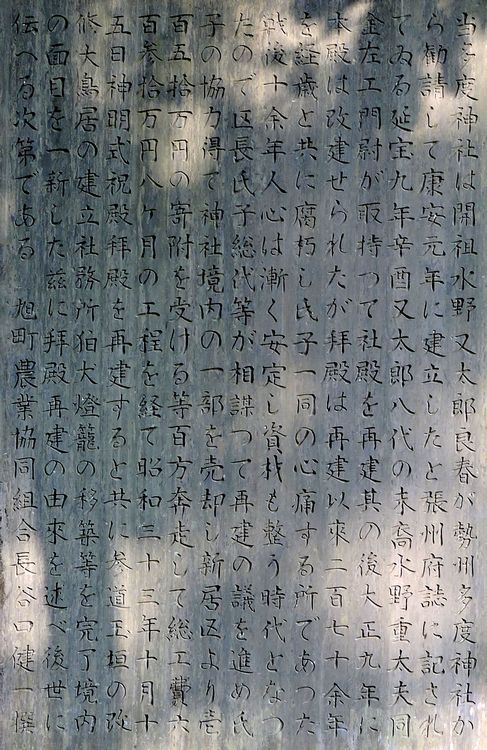 当多度神社は開祖水野又太郎良春が勢州多度神社か
ら勧請して康安元年に建立したと張州府誌に記され
てゐる延宝九年辛酉又太郎八代の末裔水野重太夫同
金左エ門尉が取持つて社殿を再建其の後大正九年に
本殿は改建せられたが拝殿は再建以來二百七十余年
を経歳と共に腐朽し氏子一同の心痛する所であつた
戦後十余年人心は漸く安定し資材も整う時代となつ
たので区長氏子総代等が相謀つて再建の議を進め氏
子の協力得て神社境内の一部を売却し新居区より壱
百五拾万円の寄附を受ける等百方奔走して総工費六
百参拾万円八ケ月の工程を経て昭和三十三年十月十
五日神明式祝殿拝殿を再建すると共に参道玉垣の改
修大鳥居の建立社務所狛犬燈籠の移築等を完了境内
の面目を一新した茲に拝殿再建の由來を述べ後世に
伝へる次第である 旭町農業協同組合長谷口健一撰